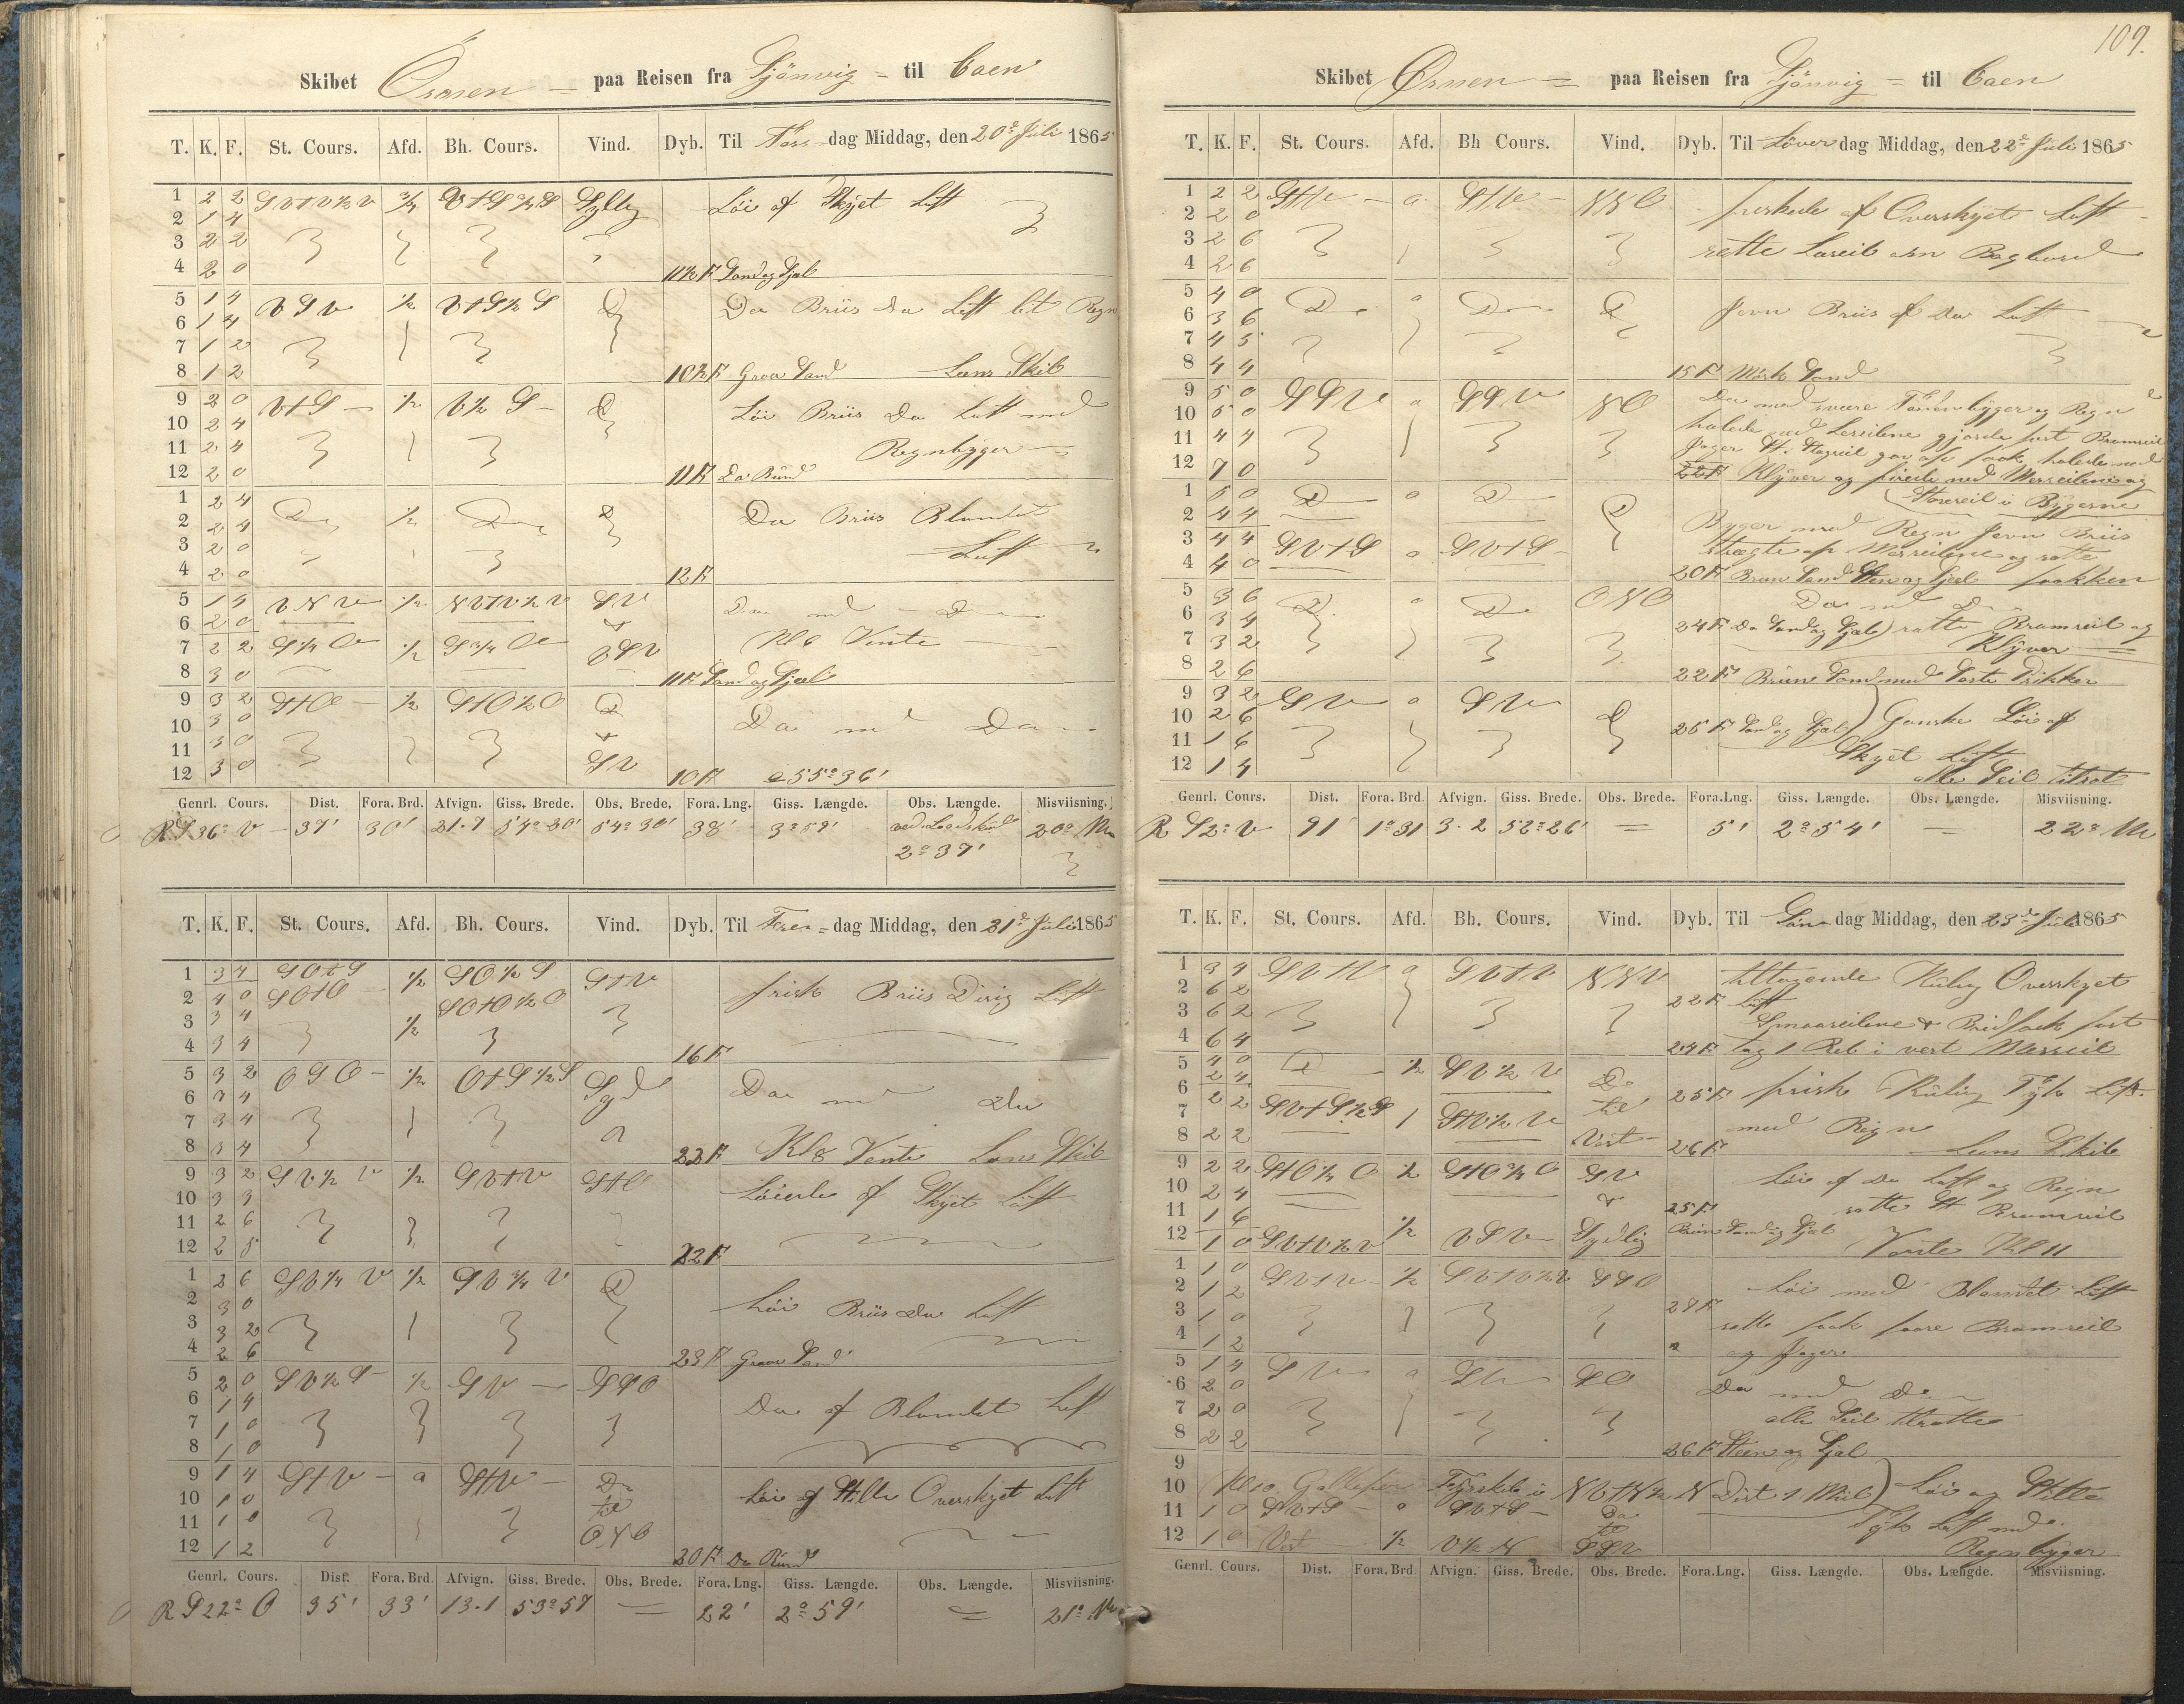 Skibet Örnen = paa Reisen fra Sjönvig = til Caen
T. K. F. St. Cours. Afd. Bh. Cours. Vind. Dyb. Til Tors-dag Middag, den 20de Juli 1865
1 2 2
2 1 4 Löi af Skyet Luft
3 2 2
4 2 0 11½ F Sand og Sjæl
5 1 4 V S V ½ Do Briis Do Luft lit Regn
6 1 4
7 1 2
8 1 2 10½ F Graa Sand Lens Skib
9 2 0 V t S ½ V½ S Do Löi Briis Do Luft med
10 2 4
11 2 4 Regnbyger
12 2 0 11 F Do Bund
1 2 4 Do ½ Do Do Do Briis Blandet
2 2 4
3 2 0 Luft
4 2 0 12 F
5 1 4 V N V ½ N V t V ½ V S V Do med Do
6 2 0 &
7 2 2 S ¼ O ½ S ¾ O V S V Kl 6 Vente
8 3 0 11 F Sand og Sjæl
9 3 2 S t O ½ S t O ½ O Do Do med Do
10 3 0
11 3 0
12 3 0 S V 10 F 55° 36'
Genrl. Cours. Dist. Fora. Brd. Afvign. Giss. Brede. Obs. Brede. Fora. Lng. Giss. Længde. Obs. Længde. Misviisning.
R S 36° V 37' 30' 21.7 54° 30' 54° 30' 38' 3° 59' 2° 37' 20°
T. K. F. St. Cours. Afd. Bh. Cours. Vind. Dyb. Til Fre=dag Middag, den 21de Juli 1865
1 3 4 S O t S ½ S O ½ S S t V frisk Briis Dirig Luft
2 4 0 S O t O S O t O ½ O
3 3 4 ½
4 3 4 16 F
5 3 2 O S O ½ O t S ½ S Syd Do med do
6 3 4
7 3 4
8 3 4 22 F Kl 8 Vente Lens Skib
9 3 2 S V ½ V ½ S V t V S t O Löiede af Skyet Luft
10 3 3
11 2 6
12 2 5 22 F
1 2 6 S V ¼ V ½ S V ¾ V Do Löi Briis do Luft
2 3 0
3 3 2
4 2 6 23 F Graa Sand
5 2 0 S V ½ S ½ S V S S O Do af Blandet Luft
6 1 4
7 1 0
8 1 0
9 1 4 S t V a S t V Do Löi af Stille Overskyet Luft
10 1 0 til
11 1 0 O N O
12 1 2 20 F Do Bund
Genrl. Cours. Dist. Fora. Brd. Afvign. Giss. Brede. Obs. Brede. Fora. Lng. Giss. Længde. Obs. Længde. Misviisning.
R S 22° O 35' 33' 13.1 53° 57 = 22' 2° 59' = 21°
109.
Skibet Örnen = paa Reisen fra Sjönvig = til Caen
T. K. F. St. Cours. Afd. Bh Cours. Vind. Dyb. Til Löverdag Middag, den 22de Juli 1865
1 2 2 S t V a S t V N N O friskede af Overskyet Luft
2 2 0
3 2 6 satte Læseil om Bagbord
4 2 6
5 4 0 Do a Do Do Jevn Briis af Do Luft
6 3 6
7 4 5
8 4 4 15 F Mörk Sand
9 5 0 S S V a S S V N O Do med svære Tordenbyger og Regn
10 5 0 halede ned Læseilene gjorde fast Bramseil
11 4 4 Jager St. Stagseil fok halede ned
12 7 0 22 F Klyver og firede ned Mersseilene og
Storseil i Bygerne
1 5 0 Do a Do Do Byger med Regn Jevn Briis
2 4 4
3 4 4 S V t S a S V t S Mersseilene og satte
4 4 0 20 F Bruun Sand Steen og Sjæl fokken
5 3 6 Do a Do O N O Do med Do
6 3 4 24 F Do Sand og Sjæl) satte Bramseil og
7 3 2 Klyver
8 2 6 22 F Bruun Sand med Sorte Prikker
9 3 2 S V a S V Do
10 2 6 25 F Sand og Sjæl) Ganske Löi af
11 1 6 Skyet Luft
12 1 4 alle Seil tilsat
Genrl. Cours. Dist. Fora. Brd. Afvign. Giss. Brede. Obs. Brede. Fora. Lng. Giss. Længde. Obs. Længde. Misviisning.
R S 2° V 91' 1° 31 3.2 52° 26' = 5' 2° 54' 22°
T. K. F. St. Cours. Afd. Bh. Cours. Vind. Dyb. Til Söndag Middag, den 23de Juli 1865
1 3 4 S V t V a S V t V N N V tiltagende Kuling Overskyet
2 6 2 22 F Luft
3 6 2 Smaaseilene & Bredfock fast
4 6 4 24 F tog 1 Reb i vert Mersseil
5 4 0 Do ½ S V ½ V Do
2 4 25 F frisk Kuling Tyk Luft
6 2 2 S V t S ½ S 1 S t V ½ V til
7 med Regn
8 2 2 Vest 26 F Lens Skib
9 2 2 S t O ½ O ½ S t O ¾ O S V Löi af Do Luft og Regn
10 2 4 &
11 1 6 25 F satte St Bramseil
12 1 0 S V t V ½ V ½ V S V Sydlig Bruun Sand og Sjæl Vente Kl 11
1 1 0 S V t V ½ S V t V ½ V S S O Löi med Blandet Luft
2 1 2 27 F
3 1 0 satte fock faare Bramseil
4 1 2 og Jager
5 1 4 S V a S V S O Do med Do
6 2 0
7 2 0 alle Seil tilsatte
8 2 2 26 F Steen og Sjæl
9
10 Kl 10 Fyrskib i N V t N ½ N Dist 1 Miil) Löi og Stille
11 1 0 S V t S a S V t S Do Tyk Luft med
til
12 1 0 Vest ½ V ½ N S S V Regnbyger
Genrl. Cours. Dist. Fora. Brd Afvign. Giss. Brede. Obs. Brede. Fora. Lng. Giss. Længde. Obs. Længde. Misviisning.